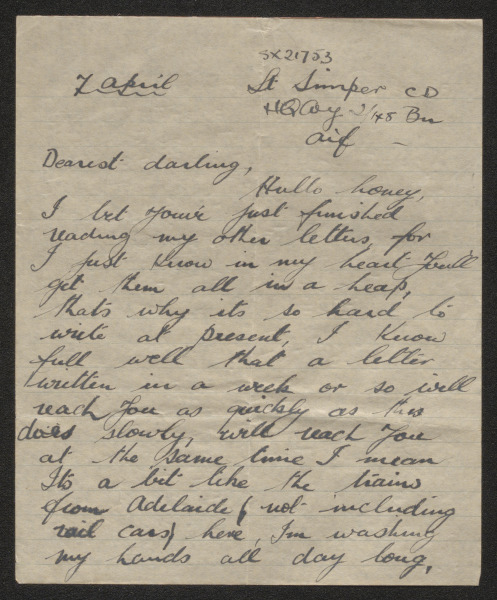 SX21753
7 april
Lt Simper CD
HQ Coy 2/48 Bn
aif -
Dearest darling,
Hullo honey,
I bet you're just finished
reading my other letters, for
I just know in my heart you'll
get them all in a heap,
thats why its so hard to
write at present, I know
full well that a letter
written in a week or so will
reach you as quickly as this
does slowly, will reach you
at the same time I mean
Its a bit like the trains
from Adelaide (not including
rail cars) here, I'm washing
my hands all day long,